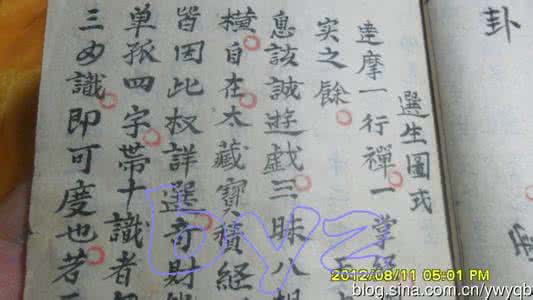 卦
選生圖式
達摩一行禪一掌經
实之餘
息該誠遊戱三昧八相
横自在太藏寶積經
皆因此权詳選奇財
单孤四字帶十識者
三四識即可度也若
DYZ
2012/08/11 05:01 PM
blog.sina.com.cn/ywyqb